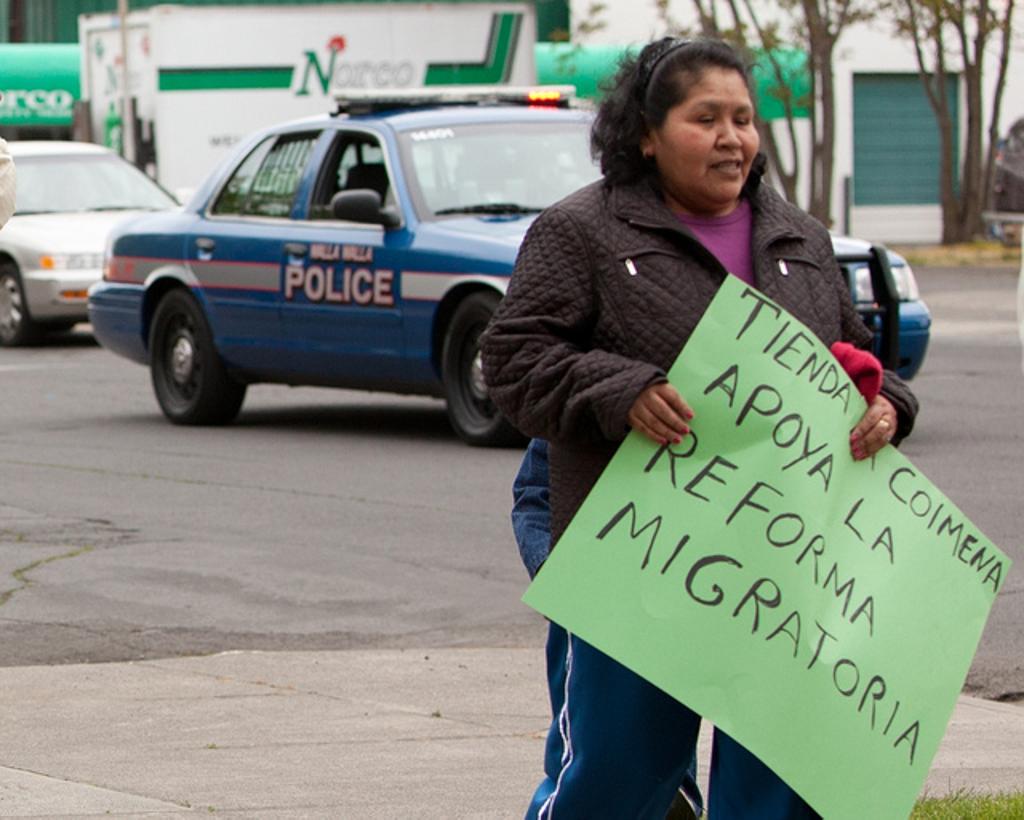 Norco
orco
14401
WALLA WALLA
POLICE
TIENDA COIMENA
APOYA LA
REFORMA
MIGRATORIA